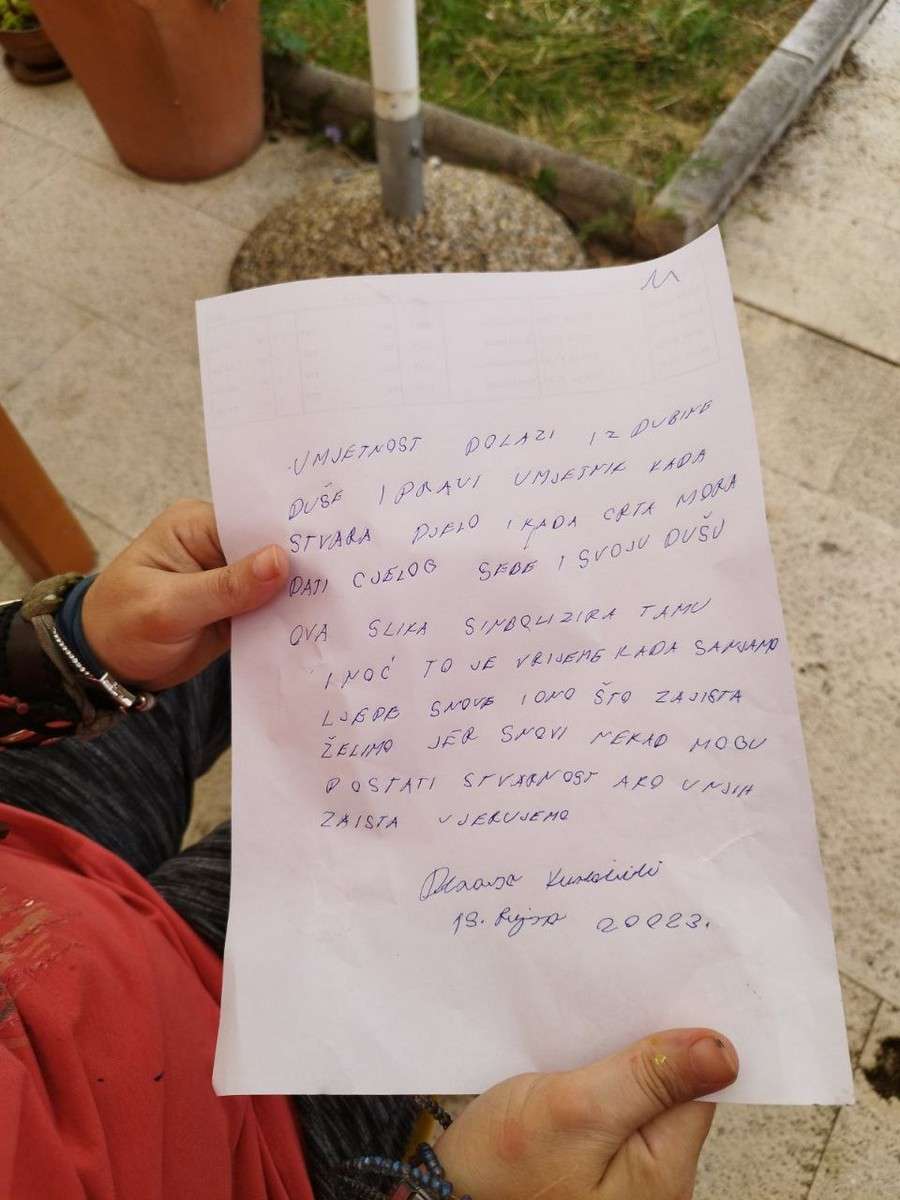 UMJETNOST DOLAZI IZ DUBINE
DUŠE I PRAVI UMJETNIK KADA
STVARA DJELO I KADA CRTA MORA
DATI CJELOG SEBE I SVOJU DUŠU
OVA SLIKA SINBOLIZIRA TAMU
I NOĆ TO JE VRIJEME KADA SANJAMO
LJEPE SNOVE I ONO ŠTO ZAJISTA
ŽELIMO JER SNOVI NEKAD MOGU
POSTATI STVARNOST AKO U NJIH
ZAISTA VJERUJEMO
19. 20223.